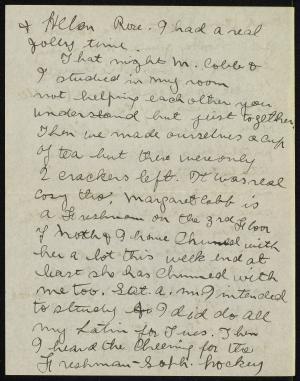 & Allen Rose. I had a real
jolly time.
That night M. Cobb &
I studied in my room
not helping each other you
understand but just together.
Then we made ourselves a cup
of tea but there were only
2 crackers left. It was real
cosy tho'. Margaret Cobb is
a Freshman on the 3rd Floor
of North & I have Chummed with
her a lot this week end at
least she has Chummed with
me too. Sat. a.m. I intended
to study & I did do all
my Latin for Tues. Then
I heard the Cheering for the
Freshman-Soph. hockey